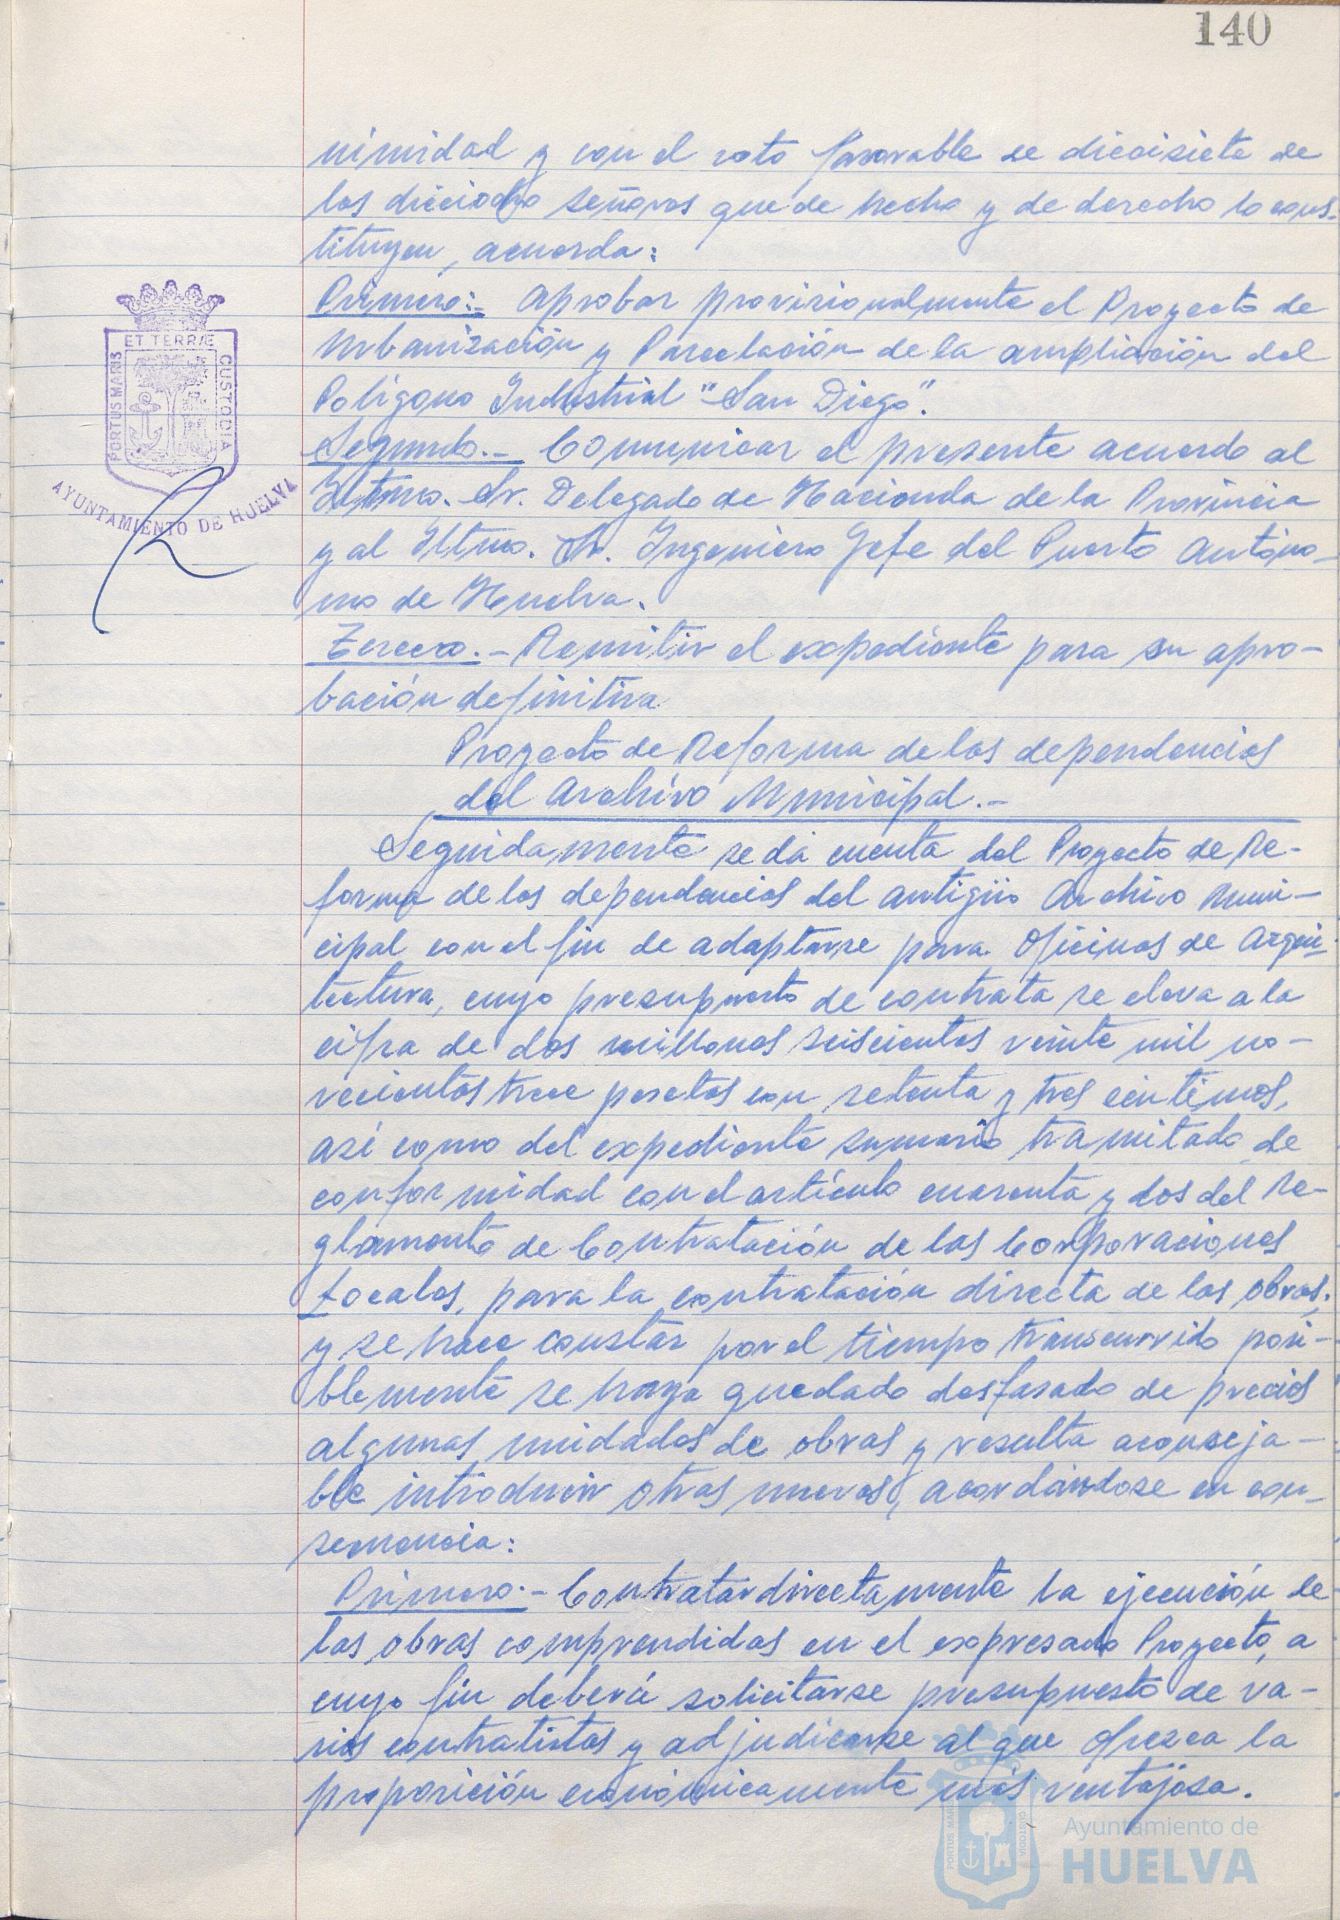 140
nimidad y con el voto favorable de diecisiete de
los dieciocho señores que de hecho y de derecho lo cons-
tituyen, acuerda:
Primero:- Aprobar provisionalmente el Proyecto de
Urbanización y Parcelación de la ampliación del
Polígono Industrial "San Diego".
Segundo.- Comunicar el presente acuerdo al
Iltmo. Sr. Delegado de Hacienda de la Provincia
y al Iltmo. Sr. Ingeniero Jefe del Puerto Autóno-
mo de Huelva.
Tercero.- Remitir el expediente para su apro-
bación definitiva.
Proyecto de Reforma de las dependencias
del Archivo Municipal.-
Seguidamente se dá cuenta del Proyecto de Re-
forma de las dependencias del antigüo Archivo Muni-
cipal con el fin de adaptarse para Oficinas de Arqui-
tectura, cuyo presupuesto de contrata se eleva a la
cifra de dos millones seiscientas veinte mil no-
vecientas trece pesetas con setenta y tres céntimos,
así como del expediente sumario tramitado de
conformidad con el artículo cuarenta y dos del Re-
glamento de Contratación de las Corporaciones
Locales, para la contratación directa de las obras,
y se hace constar por el tiempo transcurrido posi-
blemente se haya quedado desfasado de precios
algunas unidades de obras y resulta aconseja-
ble introducir otras nuevas, acordándose en con-
semencia:
Primero.- Contratar directamente la ejecución de
las obras comprendidas en el expresado Proyecto, a
cuyo fin deberá solicitarse presupuesto de va-
rios contratistas y adjudicarse al que ofrezca la
proposición económicamente más ventajosa.
PORTUS MARIS
ET TERRÆ
CUSTODIA
AYUNTAMIENTO DE HUELVA
Ayuntamiento de
HUELVA